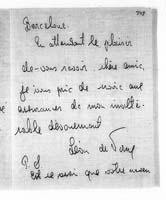 Barcelone.
En attendant le plaisir
de vous revoir, chère amie,
je vous prie de croire aux
assurances de mon inalté-
rable dévouement
Léon de
P.S.
Est ce ainsi que votre